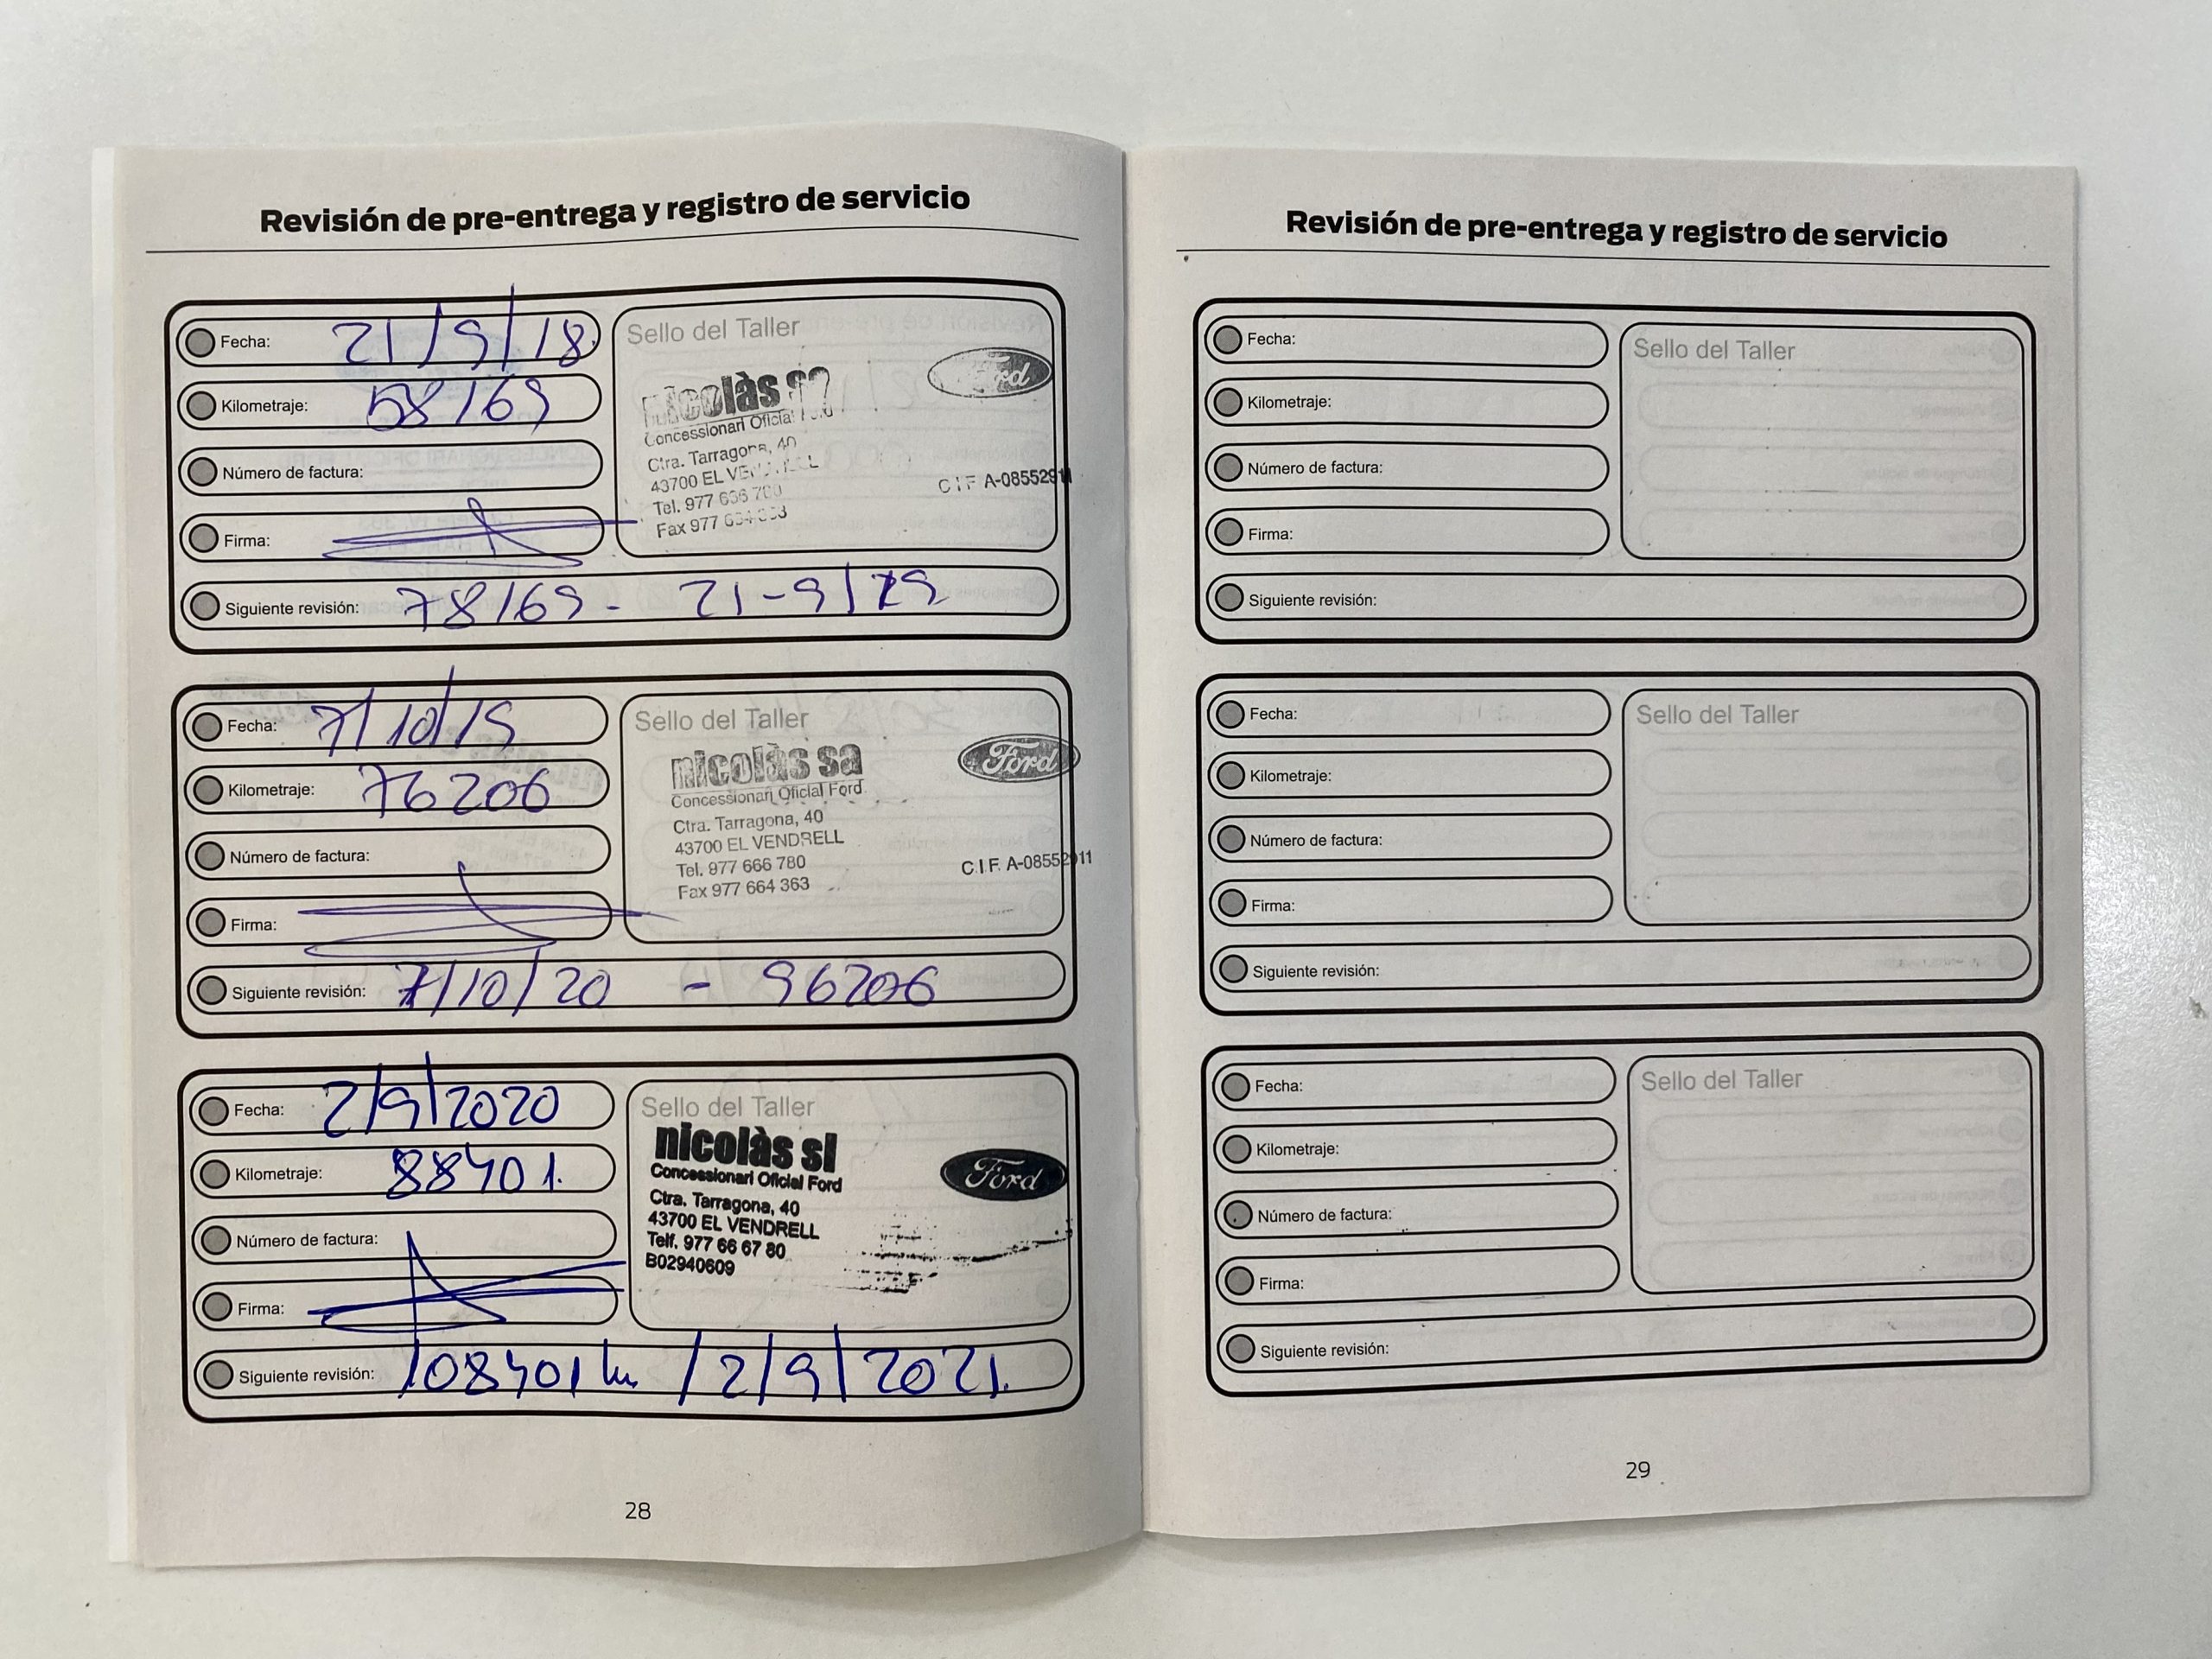 Revisión de pre-entrega y registro de servicio
Fecha: 21/9/18.
Kilometraje: 58169
Número de factura:
Firma:
Siguiente revisión: 78169 - 21-9/19
Sello del Taller
nicolàs sa
Ford
Concessionari Oficial Ford
Ctra. Tarragona, 40
43700 EL VENDRELL
Tel. 977
Fax 977
C I F A-08552911
Fecha: 7/10/19
Kilometraje: 76206
Número de factura:
Firma:
Siguiente revisión: 7/10/20 - 96206
Sello del Taller
nicolàs sa
Ford
Concessionari Oficial Ford
Ctra. Tarragona, 40
43700 EL VENDRELL
Tel. 977 666 780
Fax 977 664 363
C.I.F. A-08552911
Fecha: 2/9/2020
Kilometraje: 88401.
Número de factura:
Firma:
Siguiente revisión: 108401 km / 2/9/2021.
Sello del Taller
nicolàs sl
Ford
Concessionari Oficial Ford
Ctra. Tarragona, 40
43700 EL VENDRELL
Telf. 977 66 67 80
B02940609
28
Revisión de pre-entrega y registro de servicio
Fecha:
Kilometraje:
Número de factura:
Firma:
Siguiente revisión:
Sello del Taller
Fecha:
Kilometraje:
Número de factura:
Firma:
Siguiente revisión:
Sello del Taller
Fecha:
Kilometraje:
Número de factura:
Firma:
Siguiente revisión:
Sello del Taller
29